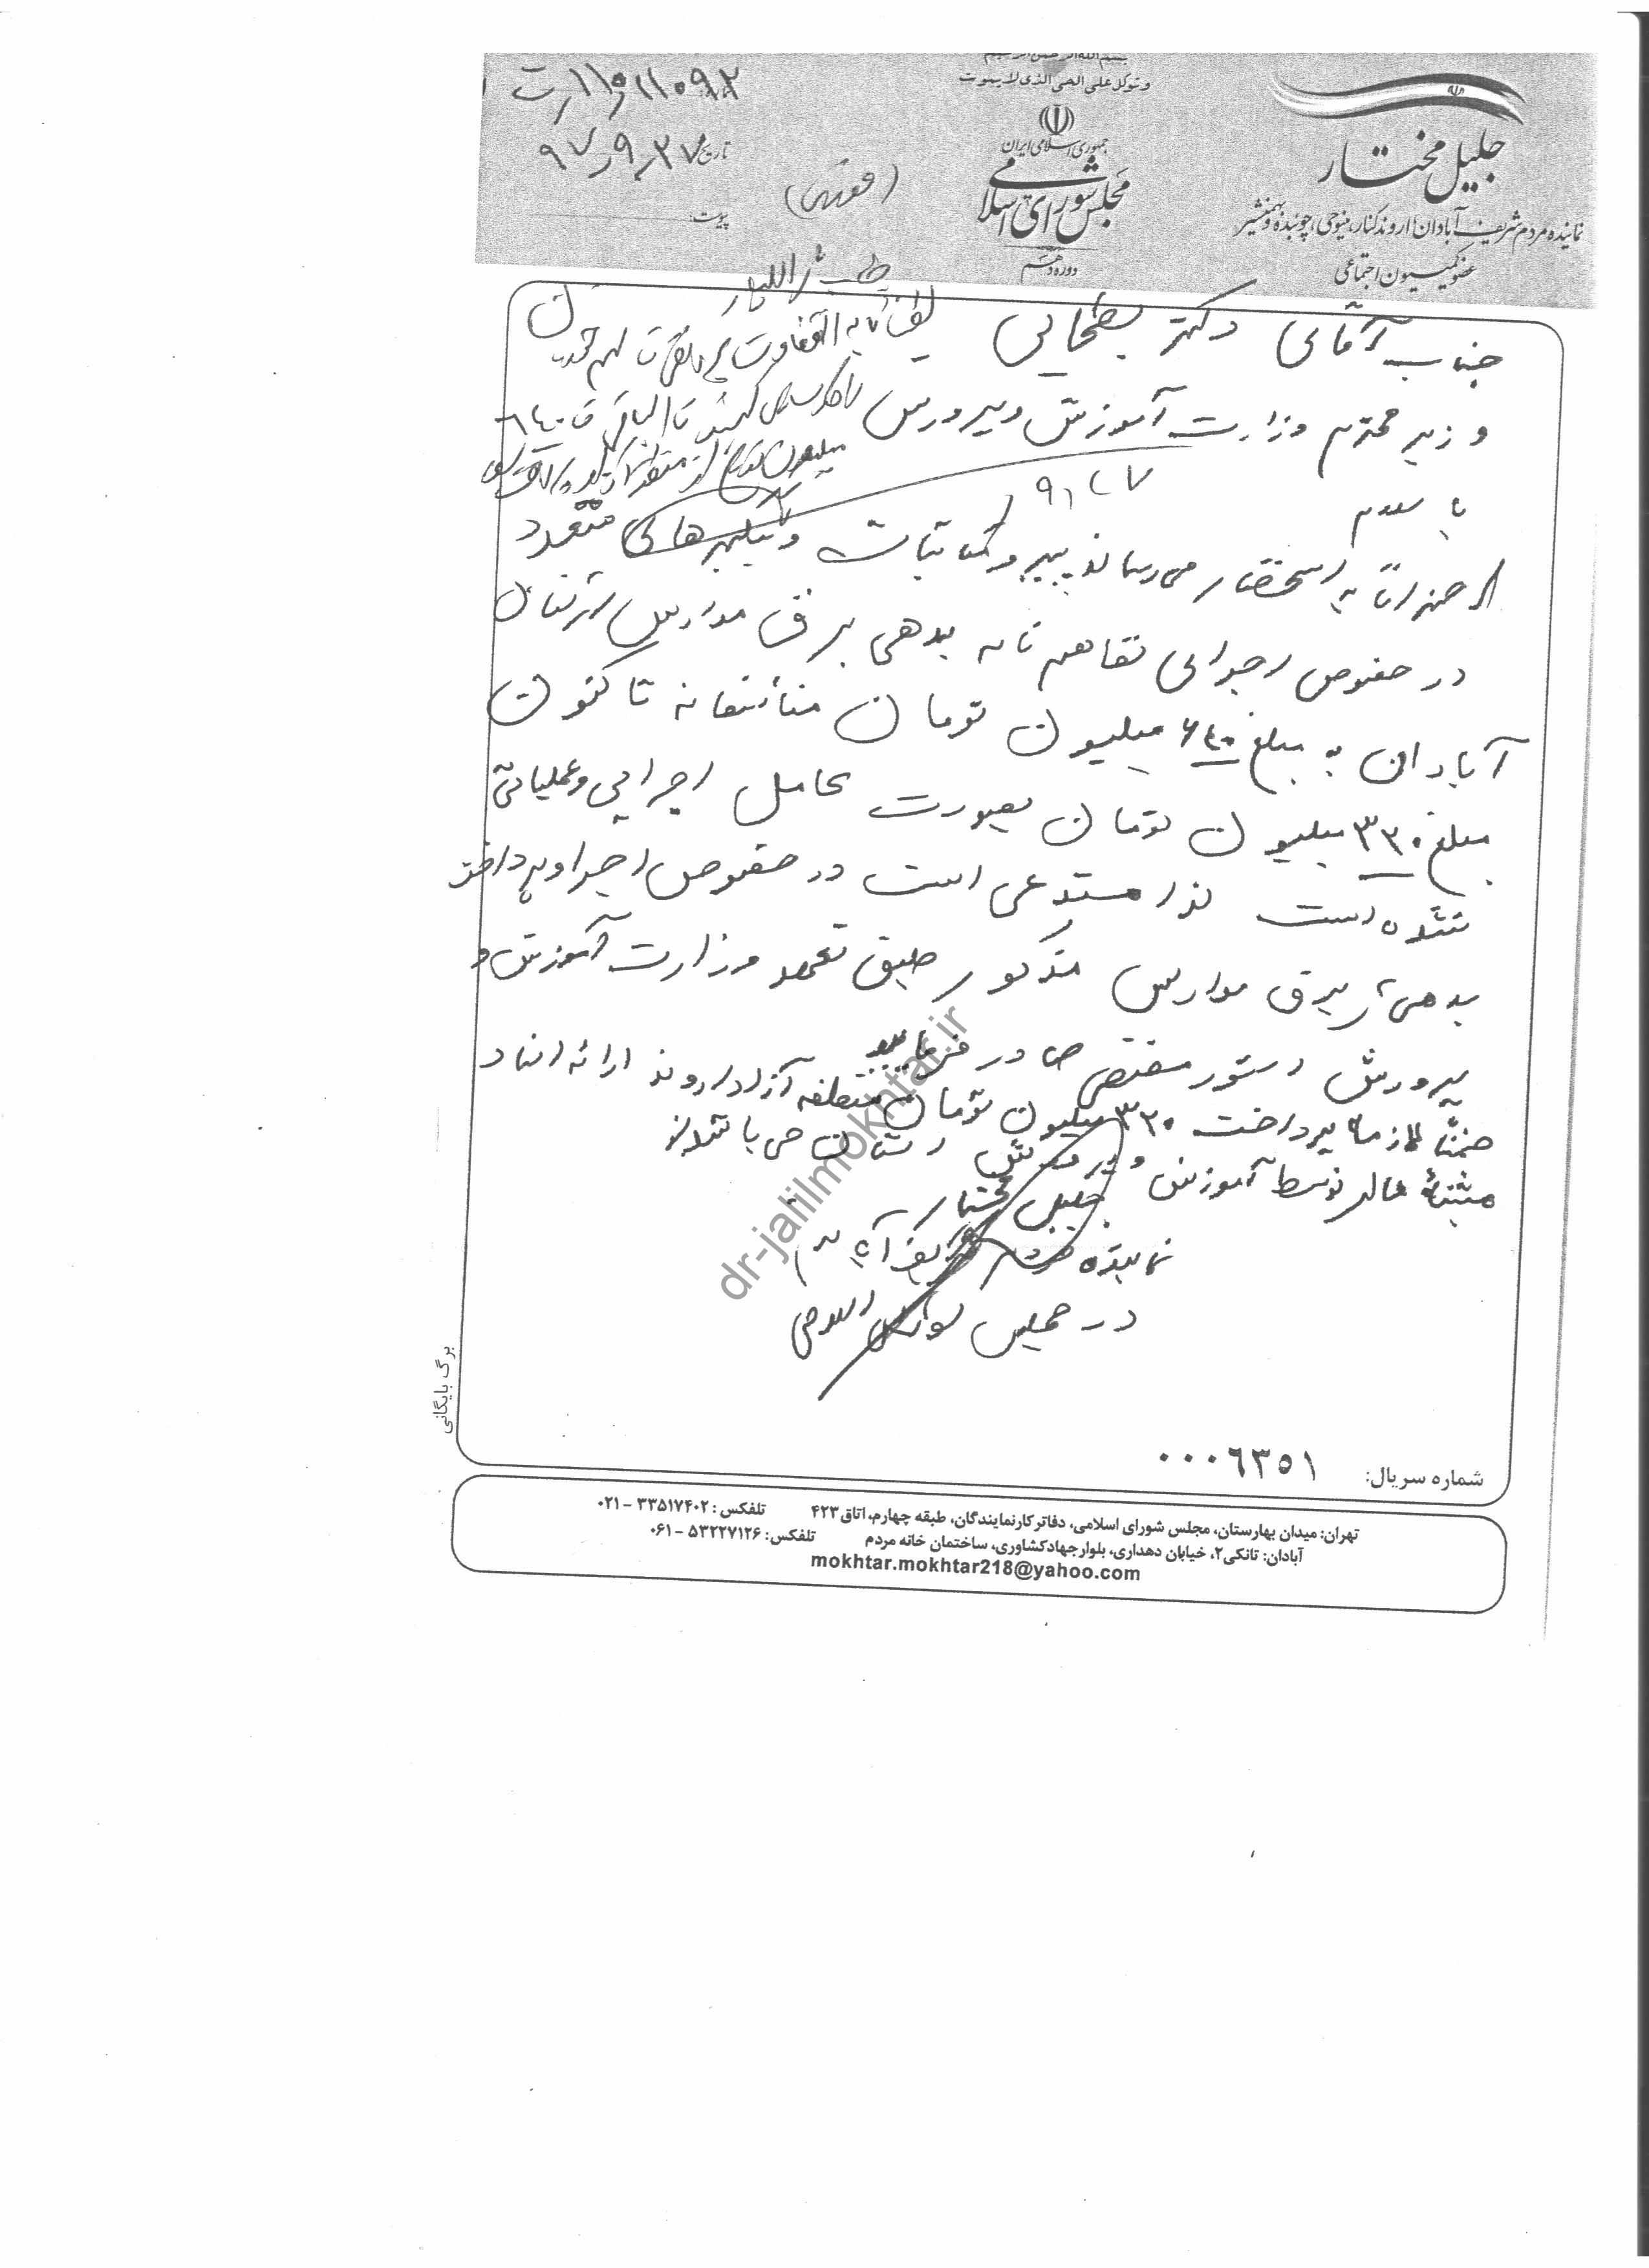 بسم الله الرحمن الرحیم
وتوکل علی الحی الذی لایموت
جمهوری اسلامی ایران
مجلس شورای اسلامی
دوره دهم
جلیل مختار
نماینده مردم شریف آبادان، اروندکنار، مینوحی، چوئبده و بهمنشیر
عضو کمیسیون اجتماعی
تاریخ ۹۷٫۹٫۲۷
پیوست:
جناب آقای دکتر بطحایی
وزیر محترم وزارت آموزش و پرورش
با سلام
احتراماً به استحضار می‌رساند پیرو مکاتبات و پیگیری‌های متعدد
در خصوص اجرای تفاهم نامه بدهی برق مدارس شهرستان
آبادان به مبلغ ۶۴۰ میلیون تومان متأسفانه تاکنون
مبلغ ۳۳۰ میلیون تومان بصورت کامل اجرایی و عملیاتی
نشده است لذا مستدعی است در خصوص اجرا و پرداخت
بدهی برق مدارس مذکور طبق تعهد وزارت آموزش و
پرورش دستور مقتضی صادر فرمایید
ضمناً لازمه پرداخت ۳۳۰ میلیون تومان منطقه آزاد اروند ارائه اسناد
مثبته مالی توسط آموزش و پرورش استان می باشد
جلیل مختار
نماینده مردم شریف آبادان
در مجلس شورای اسلامی
dr-jalilmokhtar.ir
برگ بایگانی
شماره سریال: ۰۰۰۶۳۵۱
تهران: میدان بهارستان، مجلس شورای اسلامی، دفاتر کار نمایندگان، طبقه چهارم، اتاق ۴۲۳ تلفکس: ۳۳۵۱۷۴۰۲ – ۰۲۱
آبادان: تانکی۲، خیابان دهداری، بلوار جهاد کشاورزی، ساختمان خانه مردم تلفکس: ۵۳۲۲۷۱۲۶ – ۰۶۱
mokhtar.mokhtar218@yahoo.com